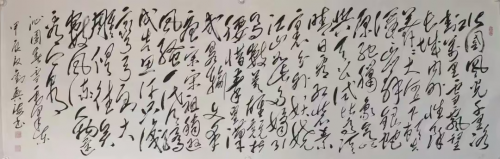 北国风光千里冰
封万里雪飘望
长城内外惟余
莽莽大河上下顿失
滔滔山舞银蛇
原驰蜡象欲
与天公试比高须
晴日看红装素
裹分外妖娆
江山如此多娇引
无数英雄竞折
腰惜秦皇汉
武略输文采
唐宗宋祖稍逊
风骚一代天骄
成吉思汗只识
弯弓射大
雕俱往矣
数风流人物还
看今朝
沁园春雪毛泽东
甲辰